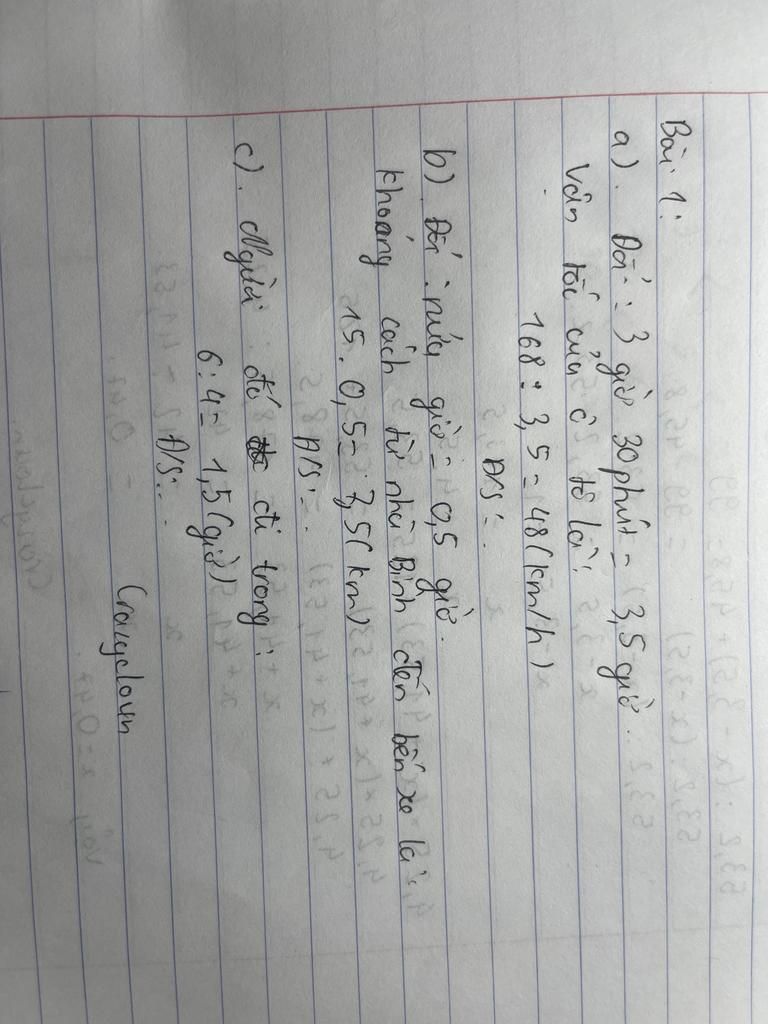 Bài 1:
a). Đổi: 3 giờ 30 phút = 3,5 giờ.
Vận tốc của ô tô là:
168 : 3,5 = 48 (km/h)
Đ/S: .
b) Đổi: nửa giờ = 0,5 giờ.
khoảng cách từ nhà Bình đến bến xe là:
15. 0,5 = 7,5 (km)
Đ/S: .
c). Người đó đi trong:
6 : 4 = 1,5 (giờ)
Đ/S: .
Craigcloun